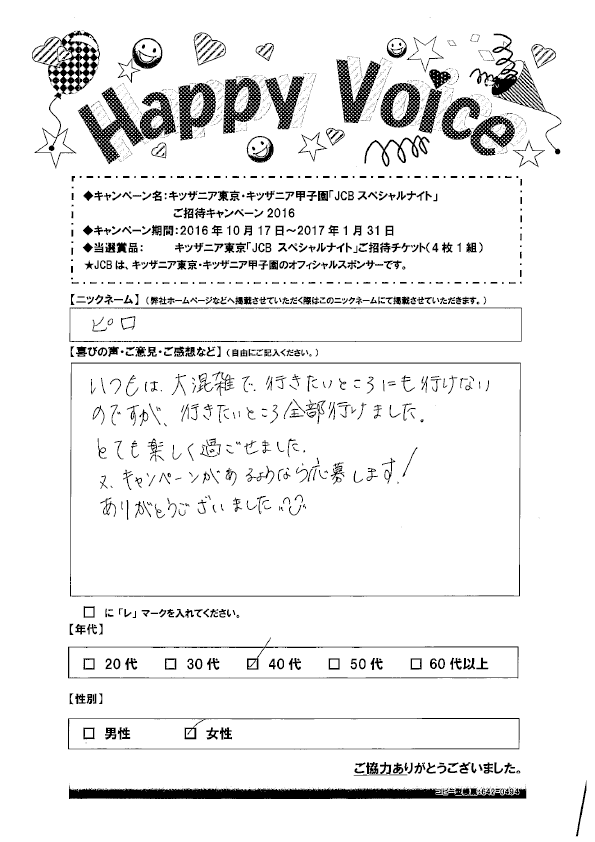 Happy Voice
◆キャンペーン名:キッザニア東京・キッザニア甲子園「JCB スペシャルナイト」
ご招待キャンペーン 2016
◆キャンペーン期間:2016 年 10 月 17 日～2017 年 1 月 31 日
◆当選賞品: キッザニア東京「JCB スペシャルナイト」ご招待チケット(4 枚 1 組)
★JCB は、キッザニア東京・キッザニア甲子園のオフィシャルスポンサーです。
【ニックネーム】(弊社ホームページなどへ掲載させていただく際はこのニックネームにて掲載させていただきます。)
ピロ
【喜びの声・ご意見・ご感想など】(自由にご記入ください。)
いつもは、大混雑で、行きたいところにも行けない
のですが、行きたいところ全部行けました。
とても楽しく過ごせました。
又、キャンペーンがあるようなら応募します!
ありがとうございました
□ に「レ」マークを入れてください。
【年代】
□ 20 代 □ 30 代 ☑ 40 代 □ 50 代 □ 60 代以上
【性別】
□ 男性 ☑ 女性
ご協力ありがとうございました。